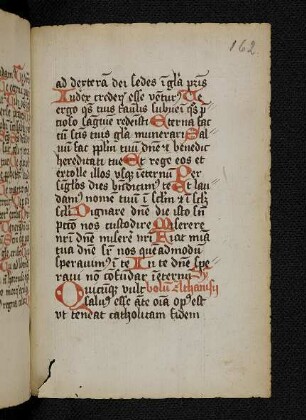 162
ad dexterā dei sedes ī glā pris
Iudex crederis esse vētur9 Te
ergo qs tuis faulis subueī qs p
tioso sāgūe redeisti Eterna fac
cū scis tuis glā munerari Sal
vū fac pplm tuū dne et bndic
hereditati tue Et rege eos et
extolle illos vsqz ī eternū Per
sīglos dies bndicim9 te Et lau
dam9 nome tuū ī sclm et ī sclm
scli Dignare dne die isto sīn
pctō nos custodire Miserere
nri dne miserē nri Fiat mīa
tua dne sr nos quēadmodū
sperauim9 ī te In te dne spe
raui nō cōfūdar ī eternū
Quicūqz vult
salu9 esse āte oīa op9 est
vt teneat catholicam fidem